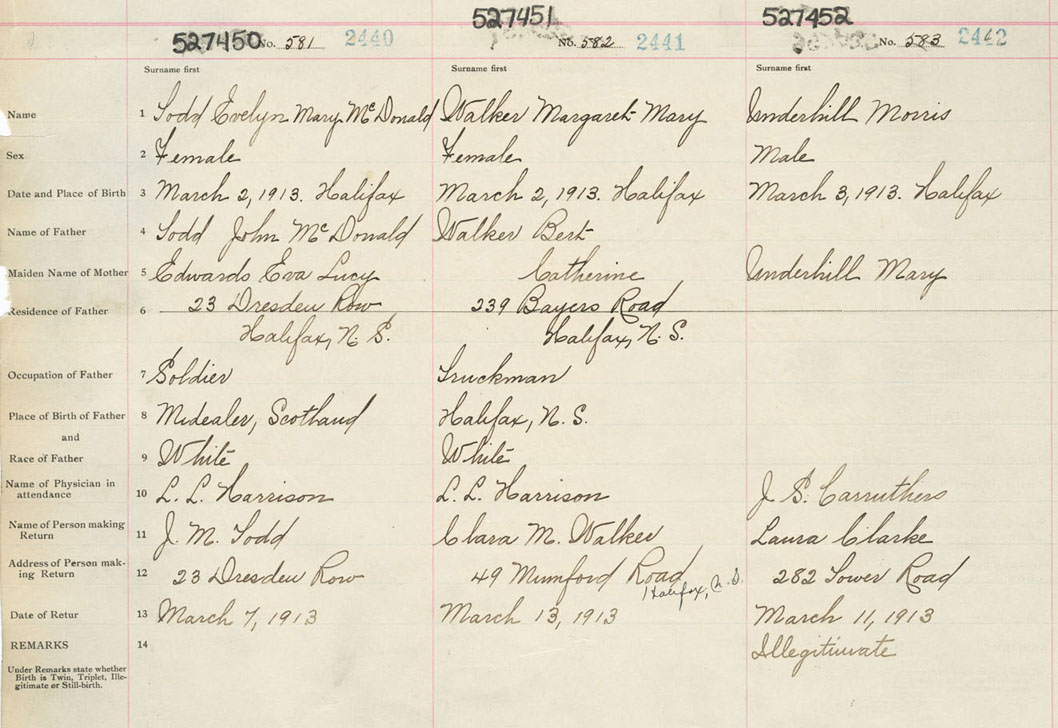 527450 No. 581 2440 527451 No. 582 2441 527452 No. 583 2442
Surname first Surname first Surname first
Name 1 Todd Evelyn Mary McDonald Walker Margaret Mary Underhill Morris
Sex 2 Female Female Male
Date and Place of Birth 3 March 2, 1913. Halifax March 2, 1913. Halifax March 3, 1913. Halifax
Name of Father 4 Todd John McDonald Walker Bert
Maiden Name of Mother 5 Edwards Eva Lucy Catherine Underhill Mary
Residence of Father 6 23 Dresden Row 239 Bayers Road
Halifax, N. S. Halifax, N. S.
Occupation of Father 7 Soldier Truckman
Place of Birth of Father 8 Midealer, Scotland Halifax, N. S.
and
Race of Father 9 White White
Name of Physician in attendance 10 L. L. Harrison L. L. Harrison J S. Carruthers
Name of Person making Return 11 J. M. Todd Clara M. Walker Laura Clarke
Address of Person making Return 12 23 Dresden Row 49 Mumford Road 282 Tower Road
Halifax, N. S.
Date of Retur 13 March 7, 1913 March 13, 1913 March 11, 1913
REMARKS 14 Illegitimate
Under Remarks state whether
Birth is Twin, Triplet, Ille-
gitimate or Still-birth.